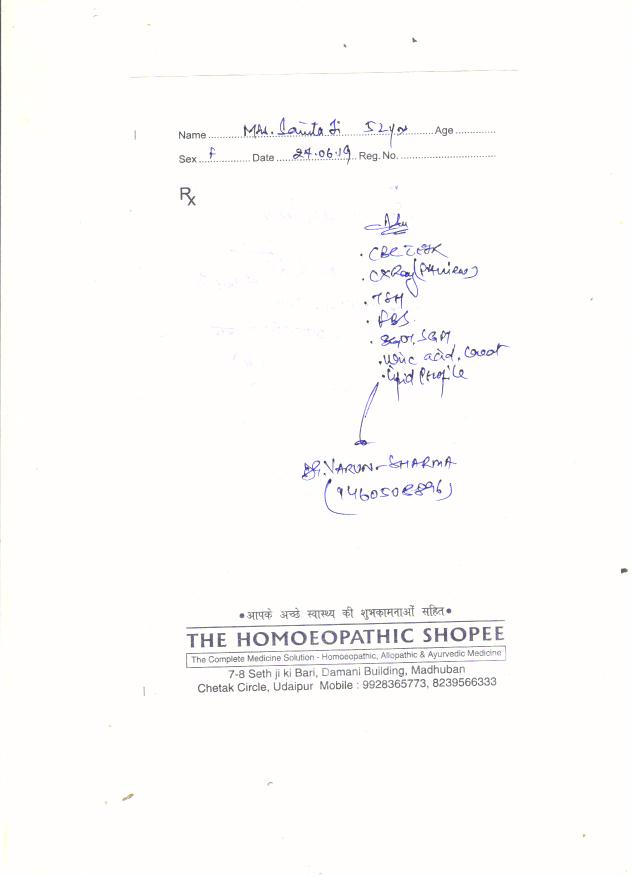 Name Mrs. Sarita Ji 52 yr Age
Sex F Date 24.06.19 Reg. No.
Rx
Adv
. CBC ESR
. CXRay (PA view)
. TSH
. FBS
. SGOT, SGPT
. Uric acid, Creat
. Lipid Profile
DR. VARUN SHARMA
(9460502896)
• आपके अच्छे स्वास्थ्य की शुभकामनाओं सहित •
THE HOMOEOPATHIC SHOPEE
The Complete Medicine Solution - Homoeopathic, Allopathic & Ayurvedic Medicine
7-8 Seth ji ki Bari, Damani Building, Madhuban
Chetak Circle, Udaipur Mobile : 9928365773, 8239566333